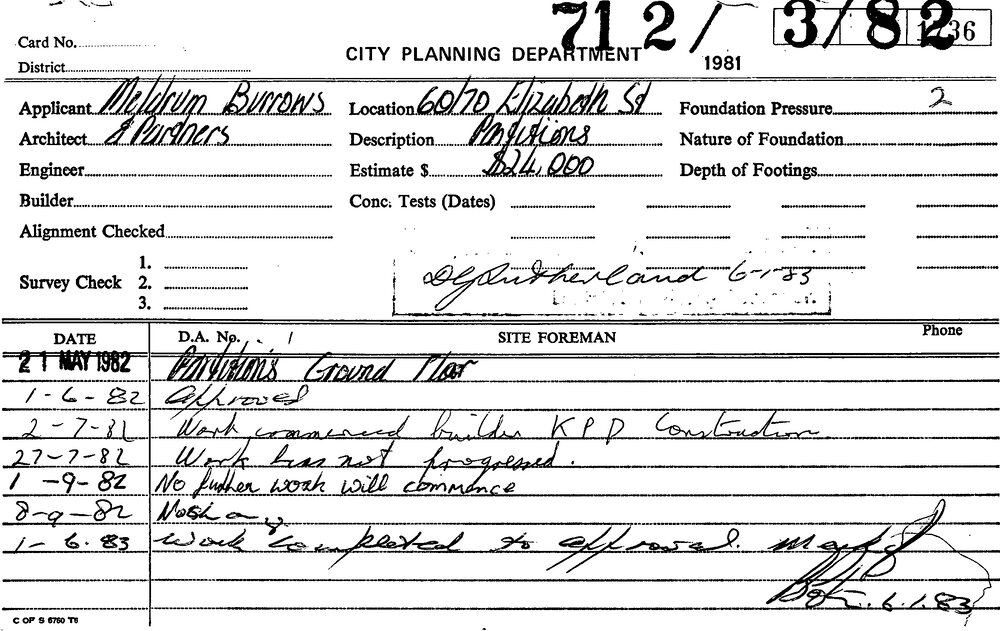 712/ 3/82 36
Card No.
CITY PLANNING DEPARTMENT 1981
District
Applicant Meldrum Burrows Location 60/70 Elizabeth St Foundation Pressure 2
Architect & Partners Description Partitions Nature of Foundation
Engineer Estimate $ $24,000 Depth of Footings
Builder Conc. Tests (Dates)
Alignment Checked
Survey Check 1.
2. DG Sutherland 6-1-83
3.
DATE D.A. No. SITE FOREMAN Phone
21 MAY 1982 Partitions Ground Floor
1-6-82 Approved
2-7-82 Work commenced builder K P D Construction
27-7-82 Work has not progressed.
1-9-82 No further work will commence
8-9-82
1-6.83 Work completed to approval.
6.1.83
C OF S 6760 T6